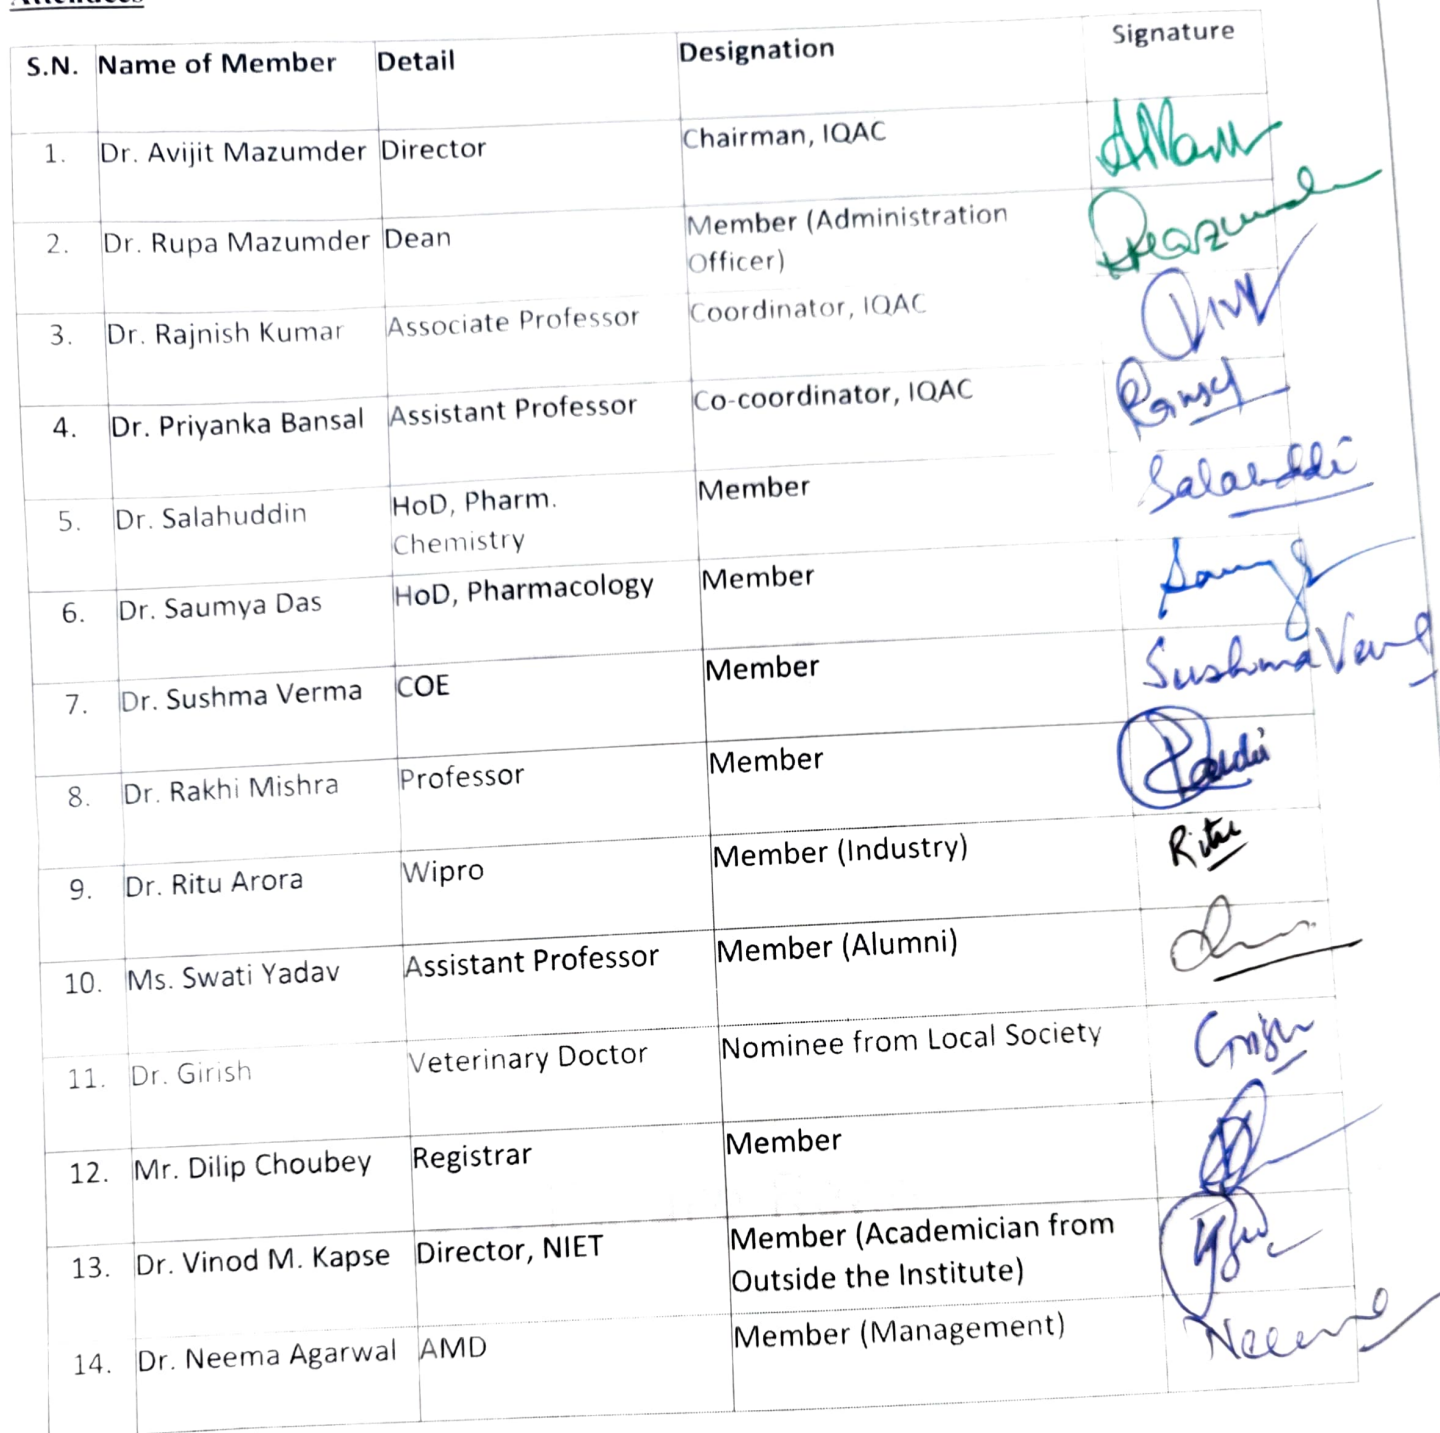 Attendees
S.N. Name of Member Detail Designation Signature
1. Dr. Avijit Mazumder Director Chairman, IQAC
2. Dr. Rupa Mazumder Dean Member (Administration
Officer)
3. Dr. Rajnish Kumar Associate Professor Coordinator, IQAC
4. Dr. Priyanka Bansal Assistant Professor Co-coordinator, IQAC
5. Dr. Salahuddin HoD, Pharm. Member
Chemistry
6. Dr. Saumya Das HoD, Pharmacology Member
7. Dr. Sushma Verma COE Member Sushma
8. Dr. Rakhi Mishra Professor Member
9. Dr. Ritu Arora Wipro Member (Industry) Ritu
10. Ms. Swati Yadav Assistant Professor Member (Alumni)
11. Dr. Girish Veterinary Doctor Nominee from Local Society
12. Mr. Dilip Choubey Registrar Member
13. Dr. Vinod M. Kapse Director, NIET Member (Academician from
Outside the Institute)
14. Dr. Neema Agarwal AMD Member (Management)